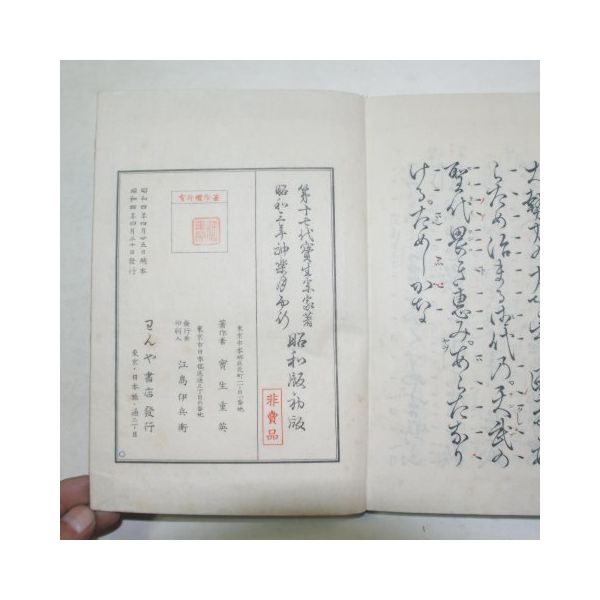 ため治まる御代の天武の
聖代畏き恵みあらたなり
ける。ためしかな
第十七代寳生宗家著
昭和三年神楽月両行
昭和版初版
非賣品
東京市本郷區元町二丁目一番地
著作者 寳生重英
東京市日本橋區通三丁目六番地
發行兼印刷人 江島伊兵衛
著作權所有
わんや書店發行
東京・日本橋・通三丁目
昭和四年四月廿五日製本
昭和四年四月三十日發行